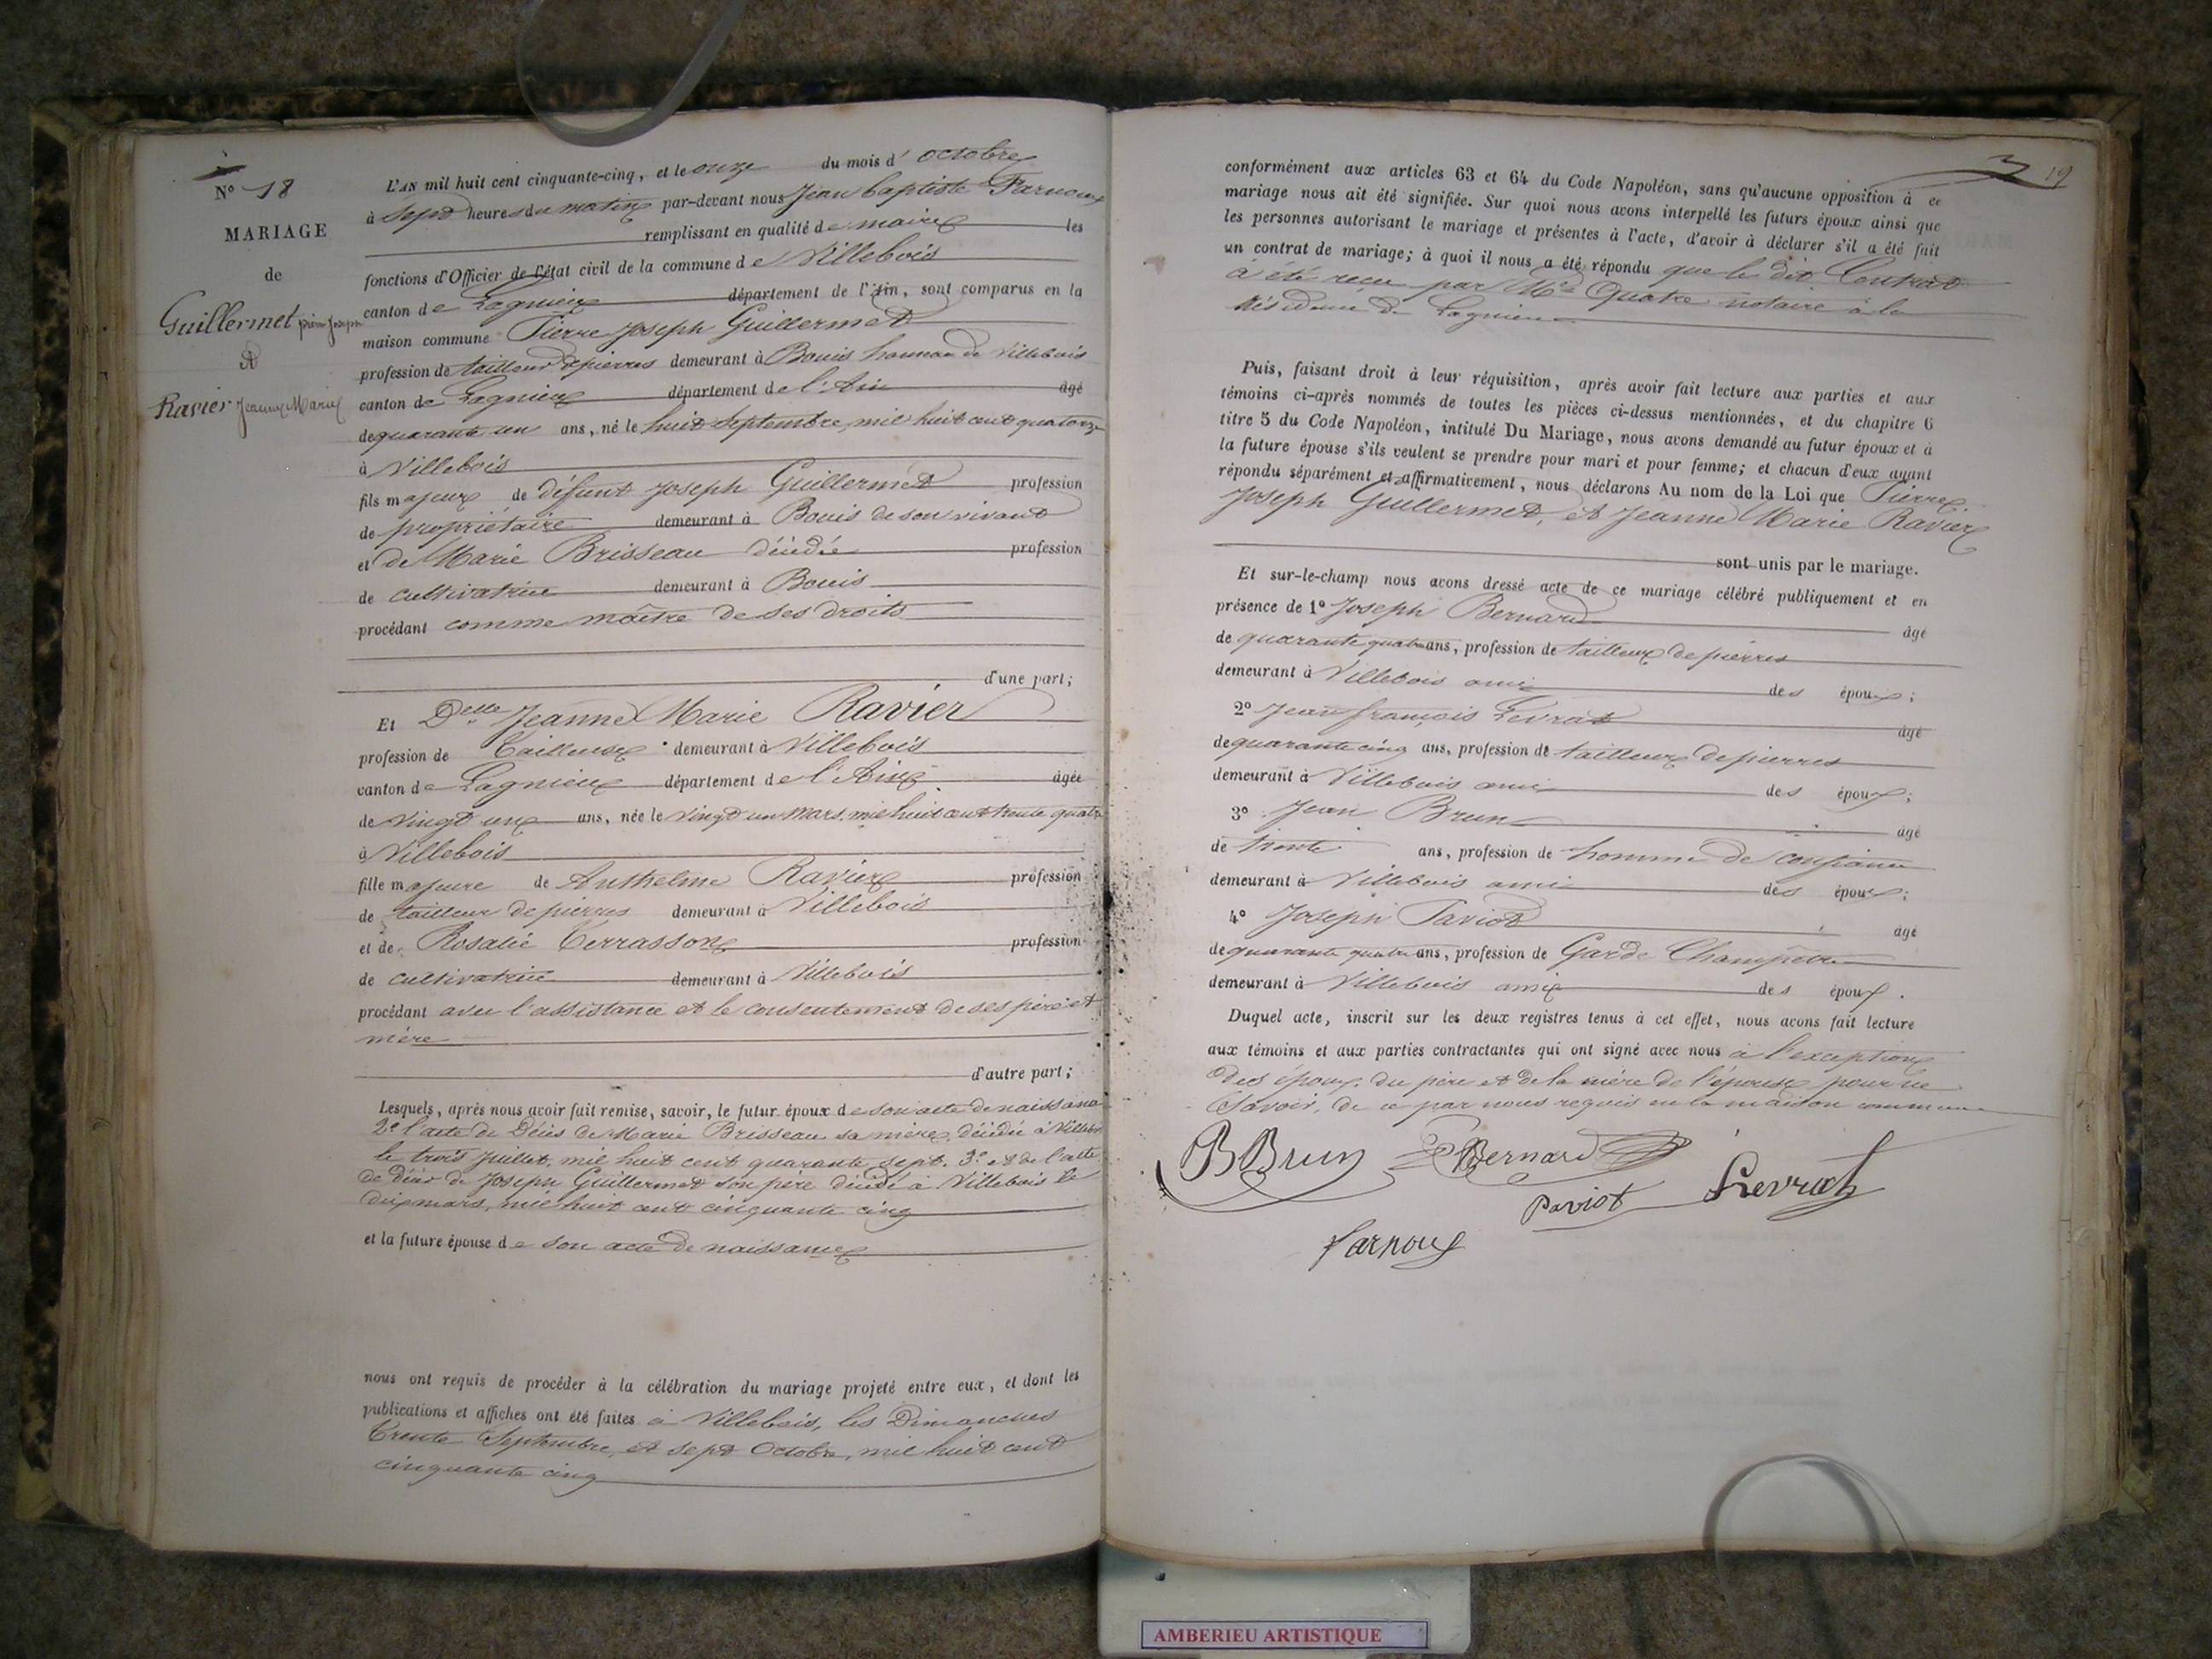 N° 18
MARIAGE
de
Guillermet pierre Joseph
et
Ravier Jeanne Marie
L'AN mil huit cent cinquante-cinq, et le onze du mois d'octobre
à sept heures du matin par-devant nous Jean baptiste Farnoux
remplissant en qualité de maire les
fonctions d'Officier de l'état civil de la commune de Villebois
canton de Lagnieu département de l'Ain, sont comparus en la
maison commune Pierre Joseph Guillermet
profession de tailleur de pierres demeurant à Bouis hameau de Villebois
canton de Lagnieu département de l'Ain âgé
de quarante un ans, né le huit Septembre, mil huit cent quatorze
à Villebois
fils majeur de défunt Joseph Guillermet profession
de propriétaire demeurant à Bouis de son vivant
et de Marie Brisseau décédée profession
de cultivatrice demeurant à Bouis
procédant comme maître de ses droits
d'une part;
Et Delle Jeanne Marie Ravier
profession de Tailleuse demeurant à Villebois
canton de Lagnieu département de l'Ain âgée
de vingt un ans, née le vingt un mars, mil huit cent trente quatre
à Villebois
fille majeure de Anthelme Ravier profession
de tailleur de pierres demeurant à Villebois
et de Rosalie Terrasson profession
de cultivatrice demeurant à Villebois
procédant avec l'assistance et le consentement de ses père et
mère
d'autre part;
Lesquels, après nous avoir fait remise, savoir, le futur époux de son acte de naissance
2° l'acte de Décès de Marie Brisseau sa mère, décédée à Villebois
le trois juillet, mil huit cent quarante sept. 3° et de l'acte
de décès de Joseph Guillermet son père décédé à Villebois le
dix mars, mil huit cent cinquante cinq
et la future épouse de son acte de naissance
nous ont requis de procéder à la célébration du mariage projeté entre eux, et dont les
publications et affiches ont été faites à Villebois, les Dimanches
Trente Septembre, et sept Octobre, mil huit cent
cinquante cinq
19
conformément aux articles 63 et 64 du Code Napoléon, sans qu'aucune opposition à ce
mariage nous ait été signifiée. Sur quoi nous avons interpellé les futurs époux ainsi que
les personnes autorisant le mariage et présentes à l'acte, d'avoir à déclarer s'il a été fait
un contrat de mariage; à quoi il nous a été répondu que le dit Contrat
à été reçu par Me Quatre notaire à la
résidence de Lagnieu
Puis, faisant droit à leur réquisition, après avoir fait lecture aux parties et aux
témoins ci-après nommés de toutes les pièces ci-dessus mentionnées, et du chapitre 6
titre 5 du Code Napoléon, intitulé Du Mariage, nous avons demandé au futur époux et à
la future épouse s'ils veulent se prendre pour mari et pour femme; et chacun d'eux ayant
répondu séparément et affirmativement, nous déclarons Au nom de la Loi que Pierre
Joseph Guillermet, et Jeanne Marie Ravier
sont unis par le mariage.
Et sur-le-champ nous avons dressé acte de ce mariage célébré publiquement et en
présence de 1° Joseph Bernard âgé
de quarante quatre ans, profession de tailleur de pierres
demeurant à Villebois ami des époux;
2° Jean françois Levrat âgé
de quarante cinq ans, profession de tailleur de pierres
demeurant à Villebois ami des époux;
3° Jean Brun âgé
de trente ans, profession de homme de confiance
demeurant à Villebois ami des époux;
4° Joseph Paviot âgé
de quarante quatre ans, profession de Garde Champêtre
demeurant à Villebois ami des époux.
Duquel acte, inscrit sur les deux registres tenus à cet effet, nous avons fait lecture
aux témoins et aux parties contractantes qui ont signé avec nous à l'exception
des époux, du père et de la mère de l'épouse pour ne
Savoir, de ce par nous requis en la maison commune
B Brun Bernard
Paviot Levrat
Farnoux
AMBERIEU ARTISTIQUE